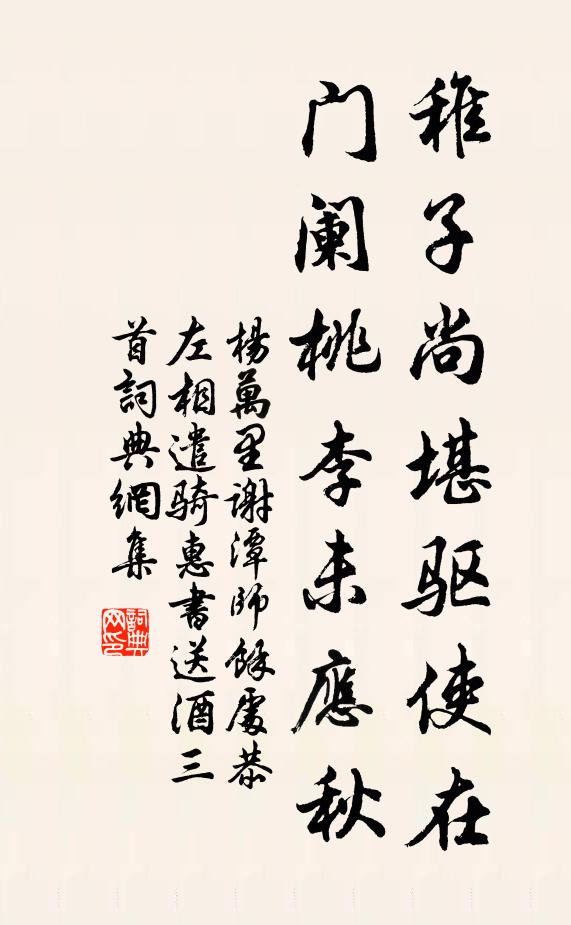 稚子尚堪驱使在
门阑桃李未應秋
楊萬里谢潭師餘處恭
左相遣骑惠書送酒三
首詞典網集
詞典网印